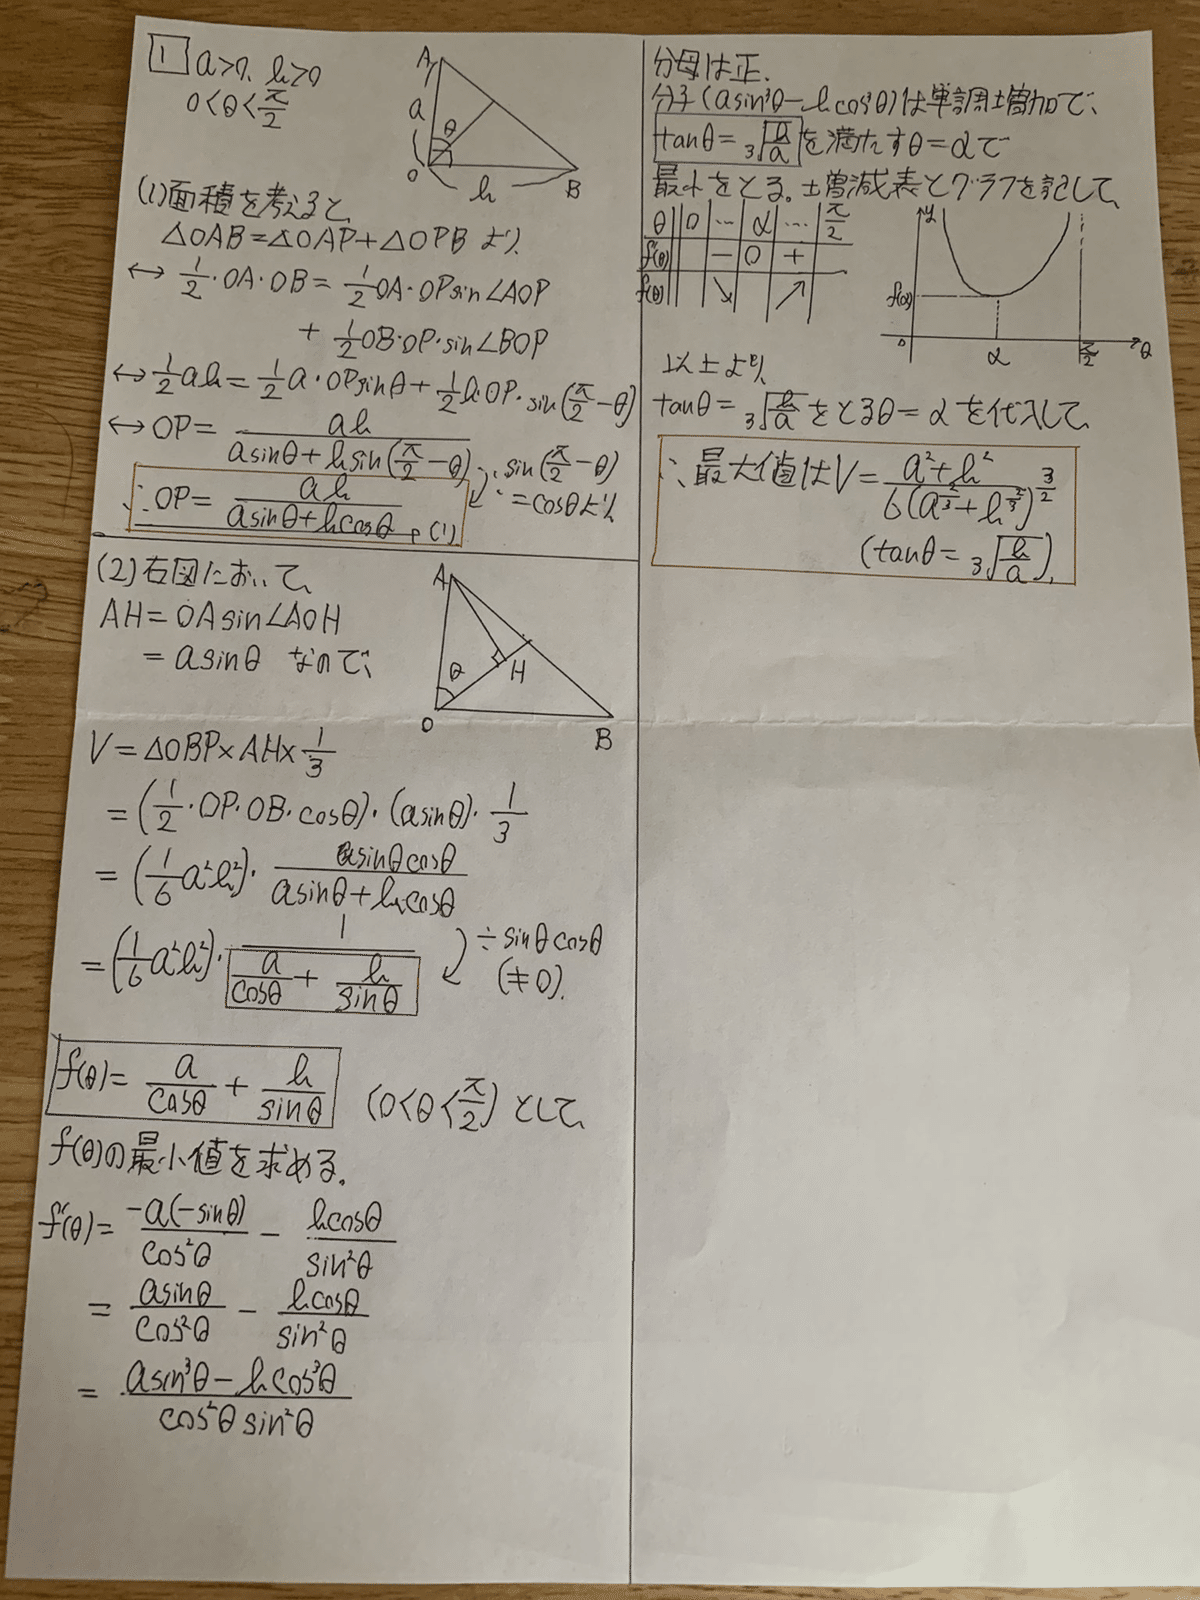 1 a>0, b>0
0<θ<π/2
A
a
θ
O
b
B
(1)面積を考えると、
△OAB=△OAP+△OPBより
↔ 1/2・OA・OB= 1/2 OA・OPsin∠AOP
+ 1/2 OB・OP・sin∠BOP
↔ 1/2 ab= 1/2 a・OPsinθ+ 1/2 b・OP・sin(π/2-θ)
↔ OP= ab/(asinθ+bsin(π/2-θ))
∵ sin(π/2-θ)
=cosθより
∴OP= ab/(asinθ+bcosθ) , (1)
(2)右図において、
AH=OAsin∠AOH
=asinθ なので、
A
θ
H
O
B
V=△OBP×AH×1/3
=(1/2・OP・OB・cosθ)・(asinθ)・1/3
=(1/6 a²b²)・ sinθcosθ/(asinθ+bcosθ)
=(1/6 a²b²)・ 1/(a/cosθ + b/sinθ)
÷sinθcosθ
(≠0).
f(θ)= a/cosθ + b/sinθ (0<θ<π/2)として、
f(θ)の最小値を求める.
f'(θ)= -a(-sinθ)/cos²θ - bcosθ/sin²θ
= asinθ/cos²θ - bcosθ/sin²θ
= (asin³θ-bcos³θ)/(cos²θsin²θ)
分母は正.
分子(asin³θ-bcos³θ)は単調増加で、
tanθ=3√(b/a)を満たすθ=αで
最小をとる.増減表とグラフを記して、
θ 0 … α … π/2
f'(θ) - 0 +
f(θ) ↘ ↗
y
f(α)
0
α
π/2
θ
以上より
tanθ=3√(b/a)をとるθ=αを代入して、
∴最大値はV= (a²+b²)/6(a^(2/3)+b^(2/3))^(3/2)
(tanθ=3√(b/a)).